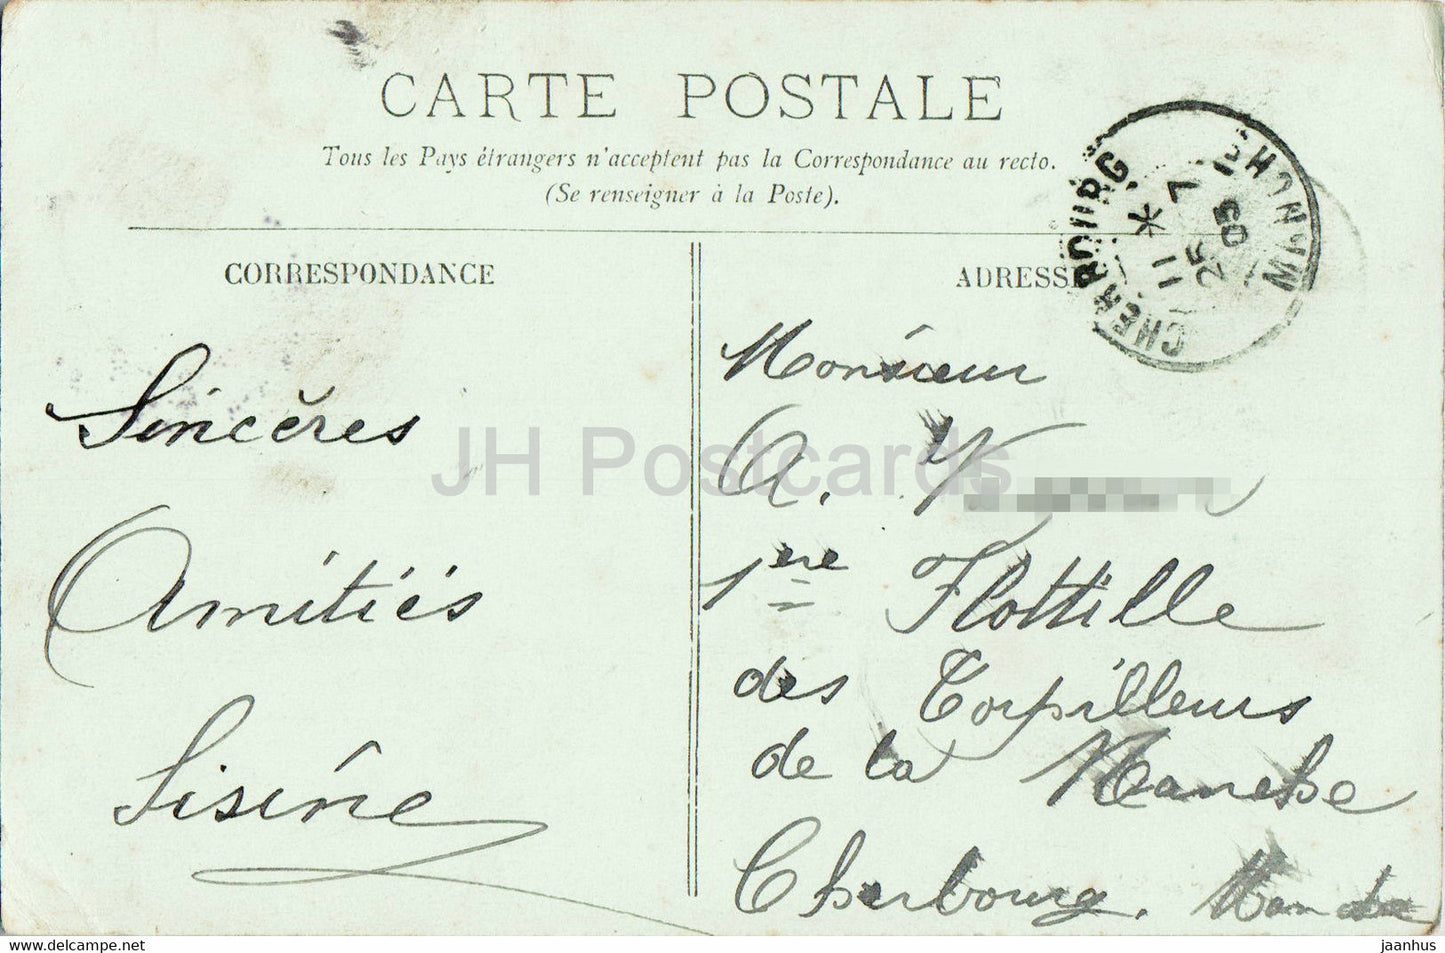 CARTE POSTALE
Tous les Pays étrangers n'acceptent pas la Correspondance au recto.
(Se renseigner à la Poste).
CORRESPONDANCE
ADRESSE
CHERBOURG
MANCHE
11 * 7
25 05
Sincères
Amitiés
Lisine
Monsieur
A. V
1ère Flottille
des Torpilleurs
de la Manche
Cherbourg. Manche
JH Postcards
jaanhus